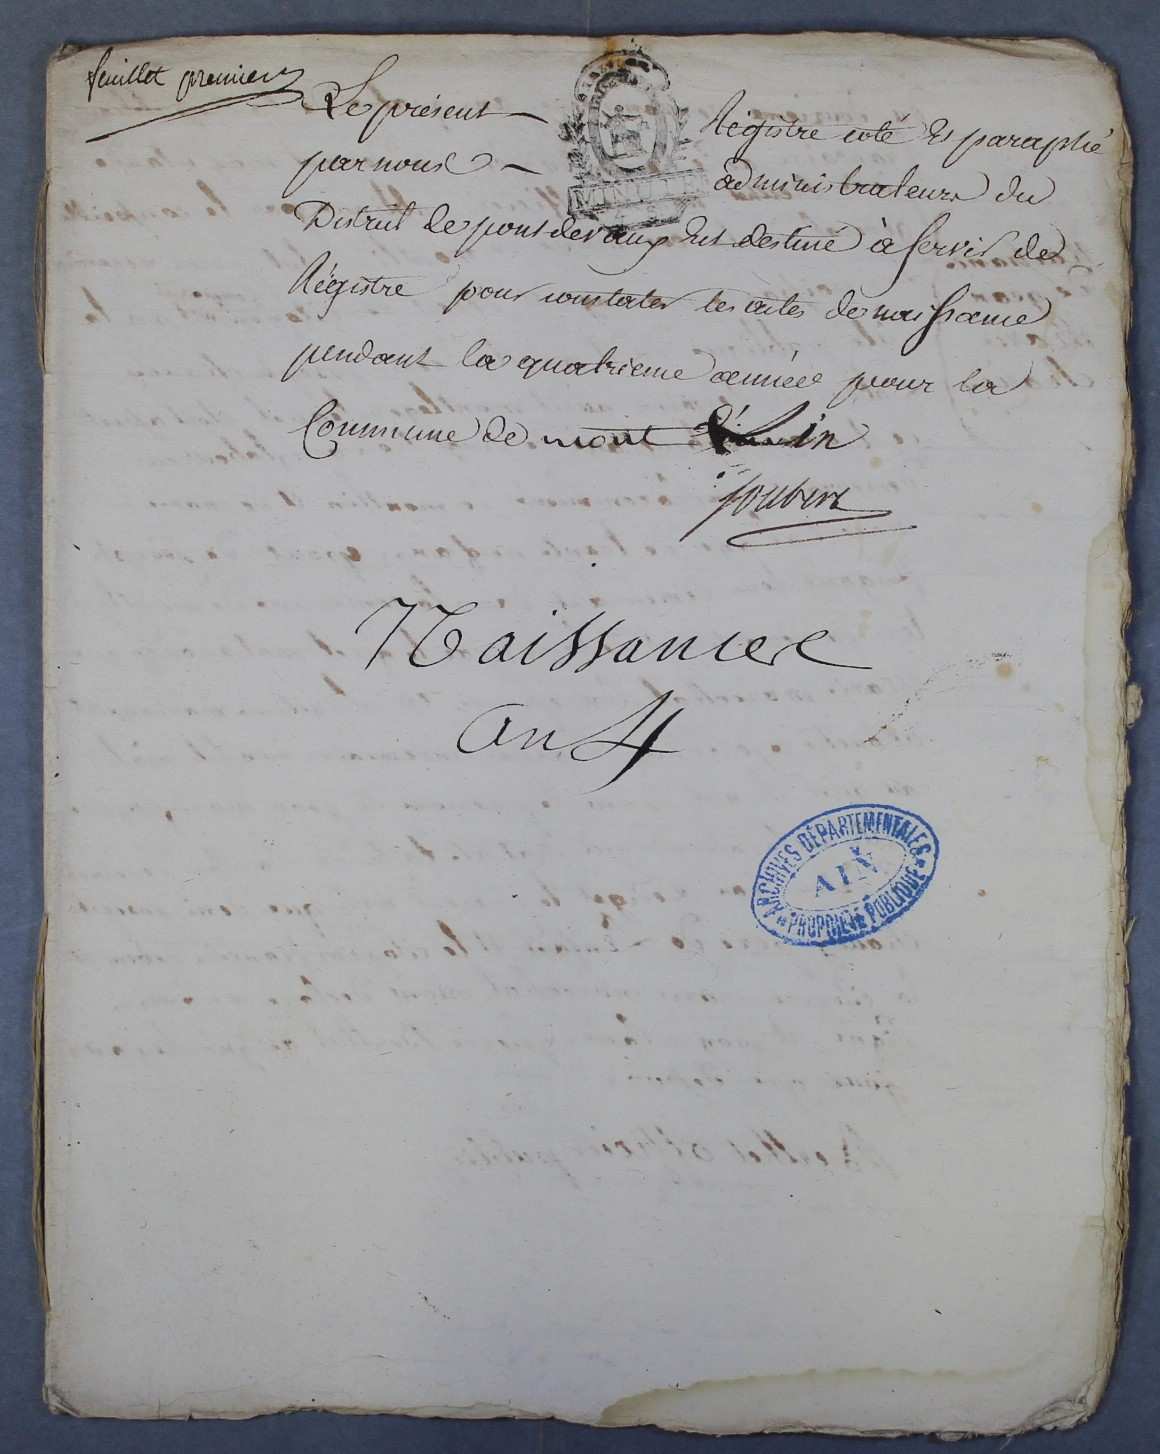 feuillet premier
Le présent Régistre coté Et paraphé
par nous administrateurs du
District de pontdevaux Est destiné à servir de
Régistre pour constater les actes de naissance
pendant la quatrieme année pour la
Commune de mont Lin
Joubert
Naissances
an 4
ARCHIVES DÉPARTEMENTALES
AIN
PROPRIÉTÉ PUBLIQUE